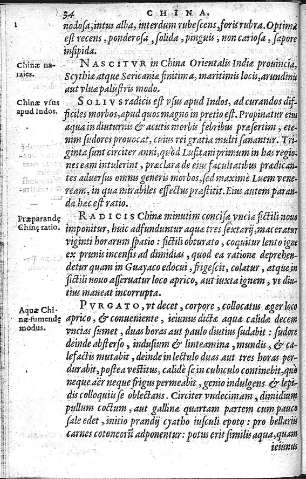 34 CHINA.
nodosa, intus alba, interdum rubescens, foris rubra. Optima
est recens, ponderosa, solida, pinguis, non cariosa, sapore
insipida.
Chinæ na-
tales.
NASCITUR in China Orientalis Indiæ provincia,
Scythiæ atque Sericaniæ finitima, maritimis locis, arundinis
aut vluæ palustris modo.
Chinæ vsus
apud Indos.
SOLIVS radicis est vsus apud Indos, ad curandos dif-
ficiles morbos, apud quos magno in pretio est. Propinatur eius
aqua in diuturnis & acutis morbis febribus præsertim, ete-
nim sudores prouocat, cuius rei gratia multi sanantur. Tri-
ginta sunt circiter anni, quòd Lusitani primum in has regio-
nes eam intulerint, præclara de eius facultatibus prædican-
tes aduersus omnis generis morbos, sed maximè Luem vene-
ream, in qua mirabiles effectus præstitit. Eius autem paran-
da hæc est ratio.
Præparandę
Chinę ratio.
RADICIS Chinæ minutim concisæ vncia fictili nouo
imponitur, huic adfunduntur aquæ tres sextarij, maceratur
viginti horarum spatio: fictili obturato, coquitur lento igne
ex prunis incensis ad dimidias, quod ea ratione deprehen-
detur quam in Guayaco edocui, frigescit, colatur, atque in
fictili nouo asseruatur loco aprico, aut iuxta ignem, vt diu-
tius maneat incorrupta.
Aquæ Chi-
næ sumendę
modus.
PVRGATO, vt decet, corpore, collocatus æger loco
aprico, & conueniente, ieiunus dictæ aquæ calidæ decem
vncias sumet, duas horas aut paulo diutius sudabit: sudore
deinde absterso, indusium & linteamina, munda, & ca-
lefacta mutabit, deinde in lectulo duas aut tres horas per-
durabit, postea vestitus, calidè se in cubiculo continebit, quò
neque aër neque frigus permeabit, genio indulgens & lepi-
dis colloquiis se oblectans. Circiter vndecimam, dimidium
pullum coctum, aut gallinæ quartam partem cum pauco
sale edet, initio prandij cyatho iusculi epoto: pro bellariis
carnes cotoneorū adponentur: potus erit similis aqua, quam
ieiunus